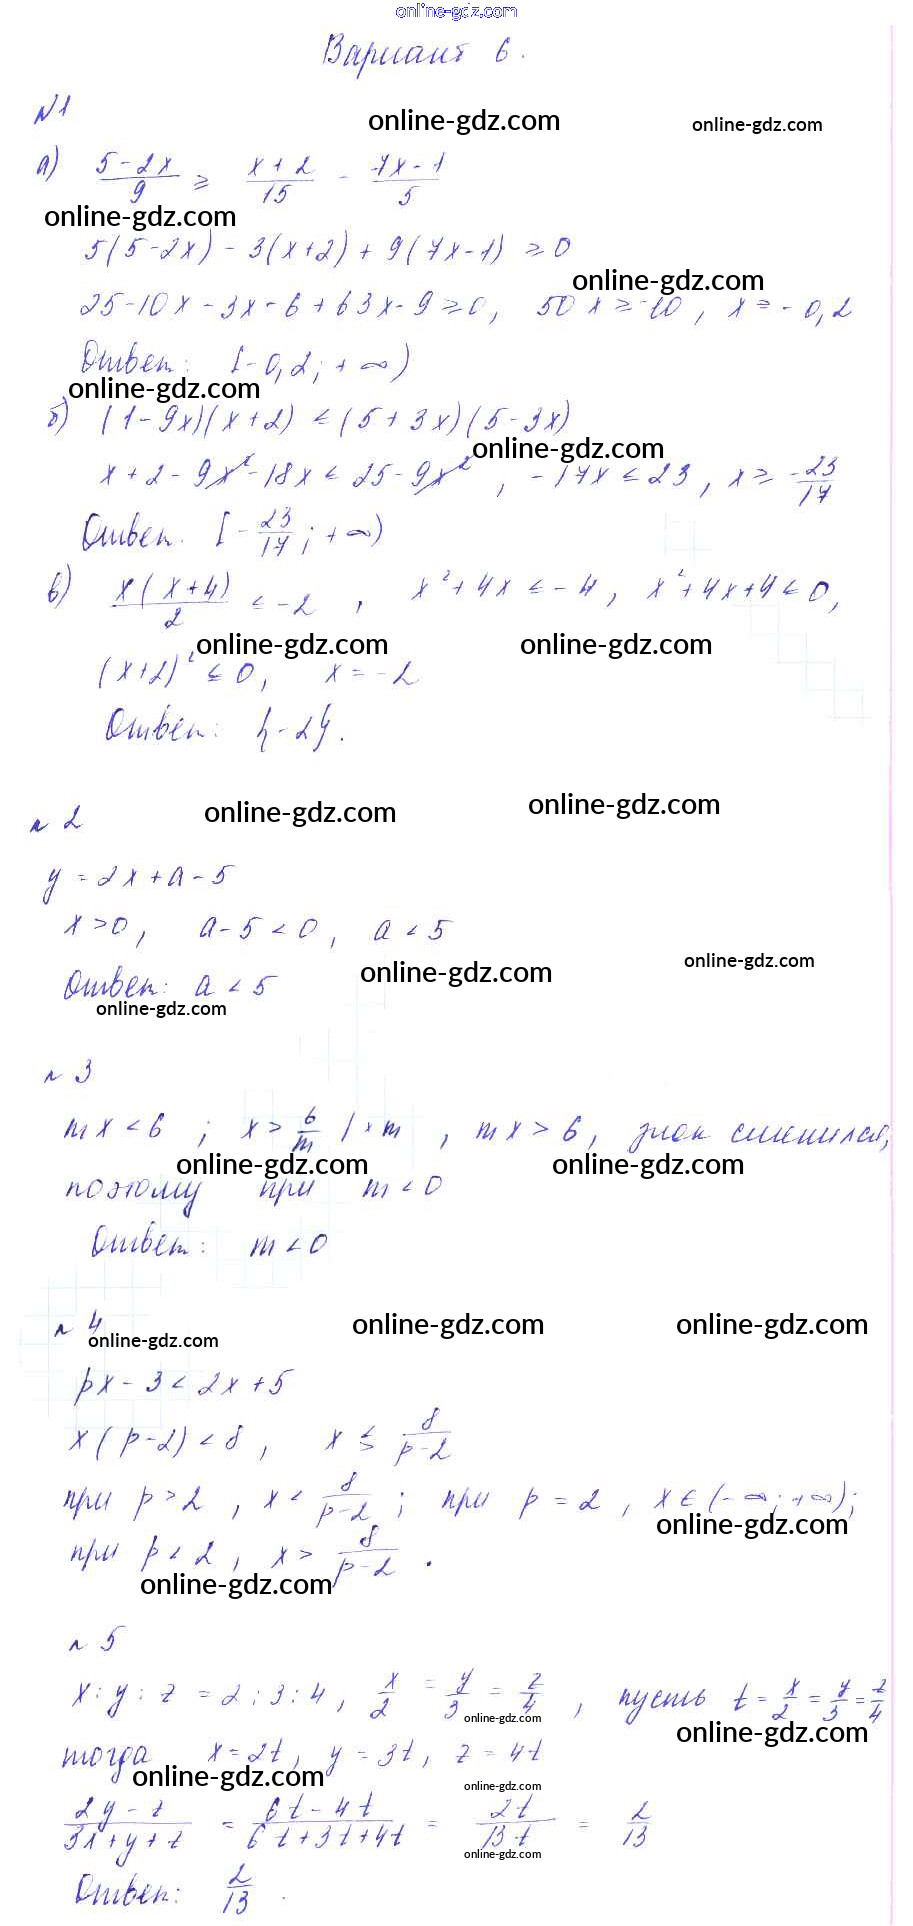 online-gdz.com
Вариант 6.
№1
online-gdz.com online-gdz.com
а) (5-2x)/9 ≥ (x+2)/15 - (7x-1)/5
online-gdz.com
5(5-2x) - 3(x+2) + 9(7x-1) ≥ 0
online-gdz.com
25-10x-3x-6+63x-9≥0, 50x≥-10, x≥-0,2
Ответ: [-0,2; +∞)
online-gdz.com
б) (1-9x)(x+2) ≤ (5+3x)(5-3x)
online-gdz.com
x+2-9x²-18x ≤ 25-9x², -17x ≤ 23, x ≥ -23/17
Ответ. [-23/17; +∞)
в) x(x+4)/2 ≤ -2, x²+4x ≤ -4, x²+4x+4≤0,
online-gdz.com online-gdz.com
(x+2)² ≤ 0, x = -2
Ответ: {-2}.
online-gdz.com online-gdz.com
№ 2
y = 2x+a-5
x>0, a-5<0, a<5
online-gdz.com online-gdz.com
Ответ: a<5
online-gdz.com
№ 3
mx<6; x > 6/m |·m, mx>6, знак сменился,
online-gdz.com online-gdz.com
поэтому при m<0
Ответ: m<0
№ 4
online-gdz.com online-gdz.com online-gdz.com
px-3<2x+5
x(p-2)<8, x ≶ 8/(p-2)
при p>2, x < 8/(p-2); при p=2, x∈(-∞;+∞);
online-gdz.com
при p<2, x > 8/(p-2).
online-gdz.com
№ 5
x:y:z = 2:3:4, x/2 = y/3 = z/4, пусть t = x/2 = y/3 = z/4
online-gdz.com online-gdz.com
тогда x=2t, y=3t, z=4t
online-gdz.com online-gdz.com
(2y-z)/(3x+y+z) = (6t-4t)/(6t+3t+4t) = 2t/13t = 2/13
online-gdz.com
Ответ: 2/13.